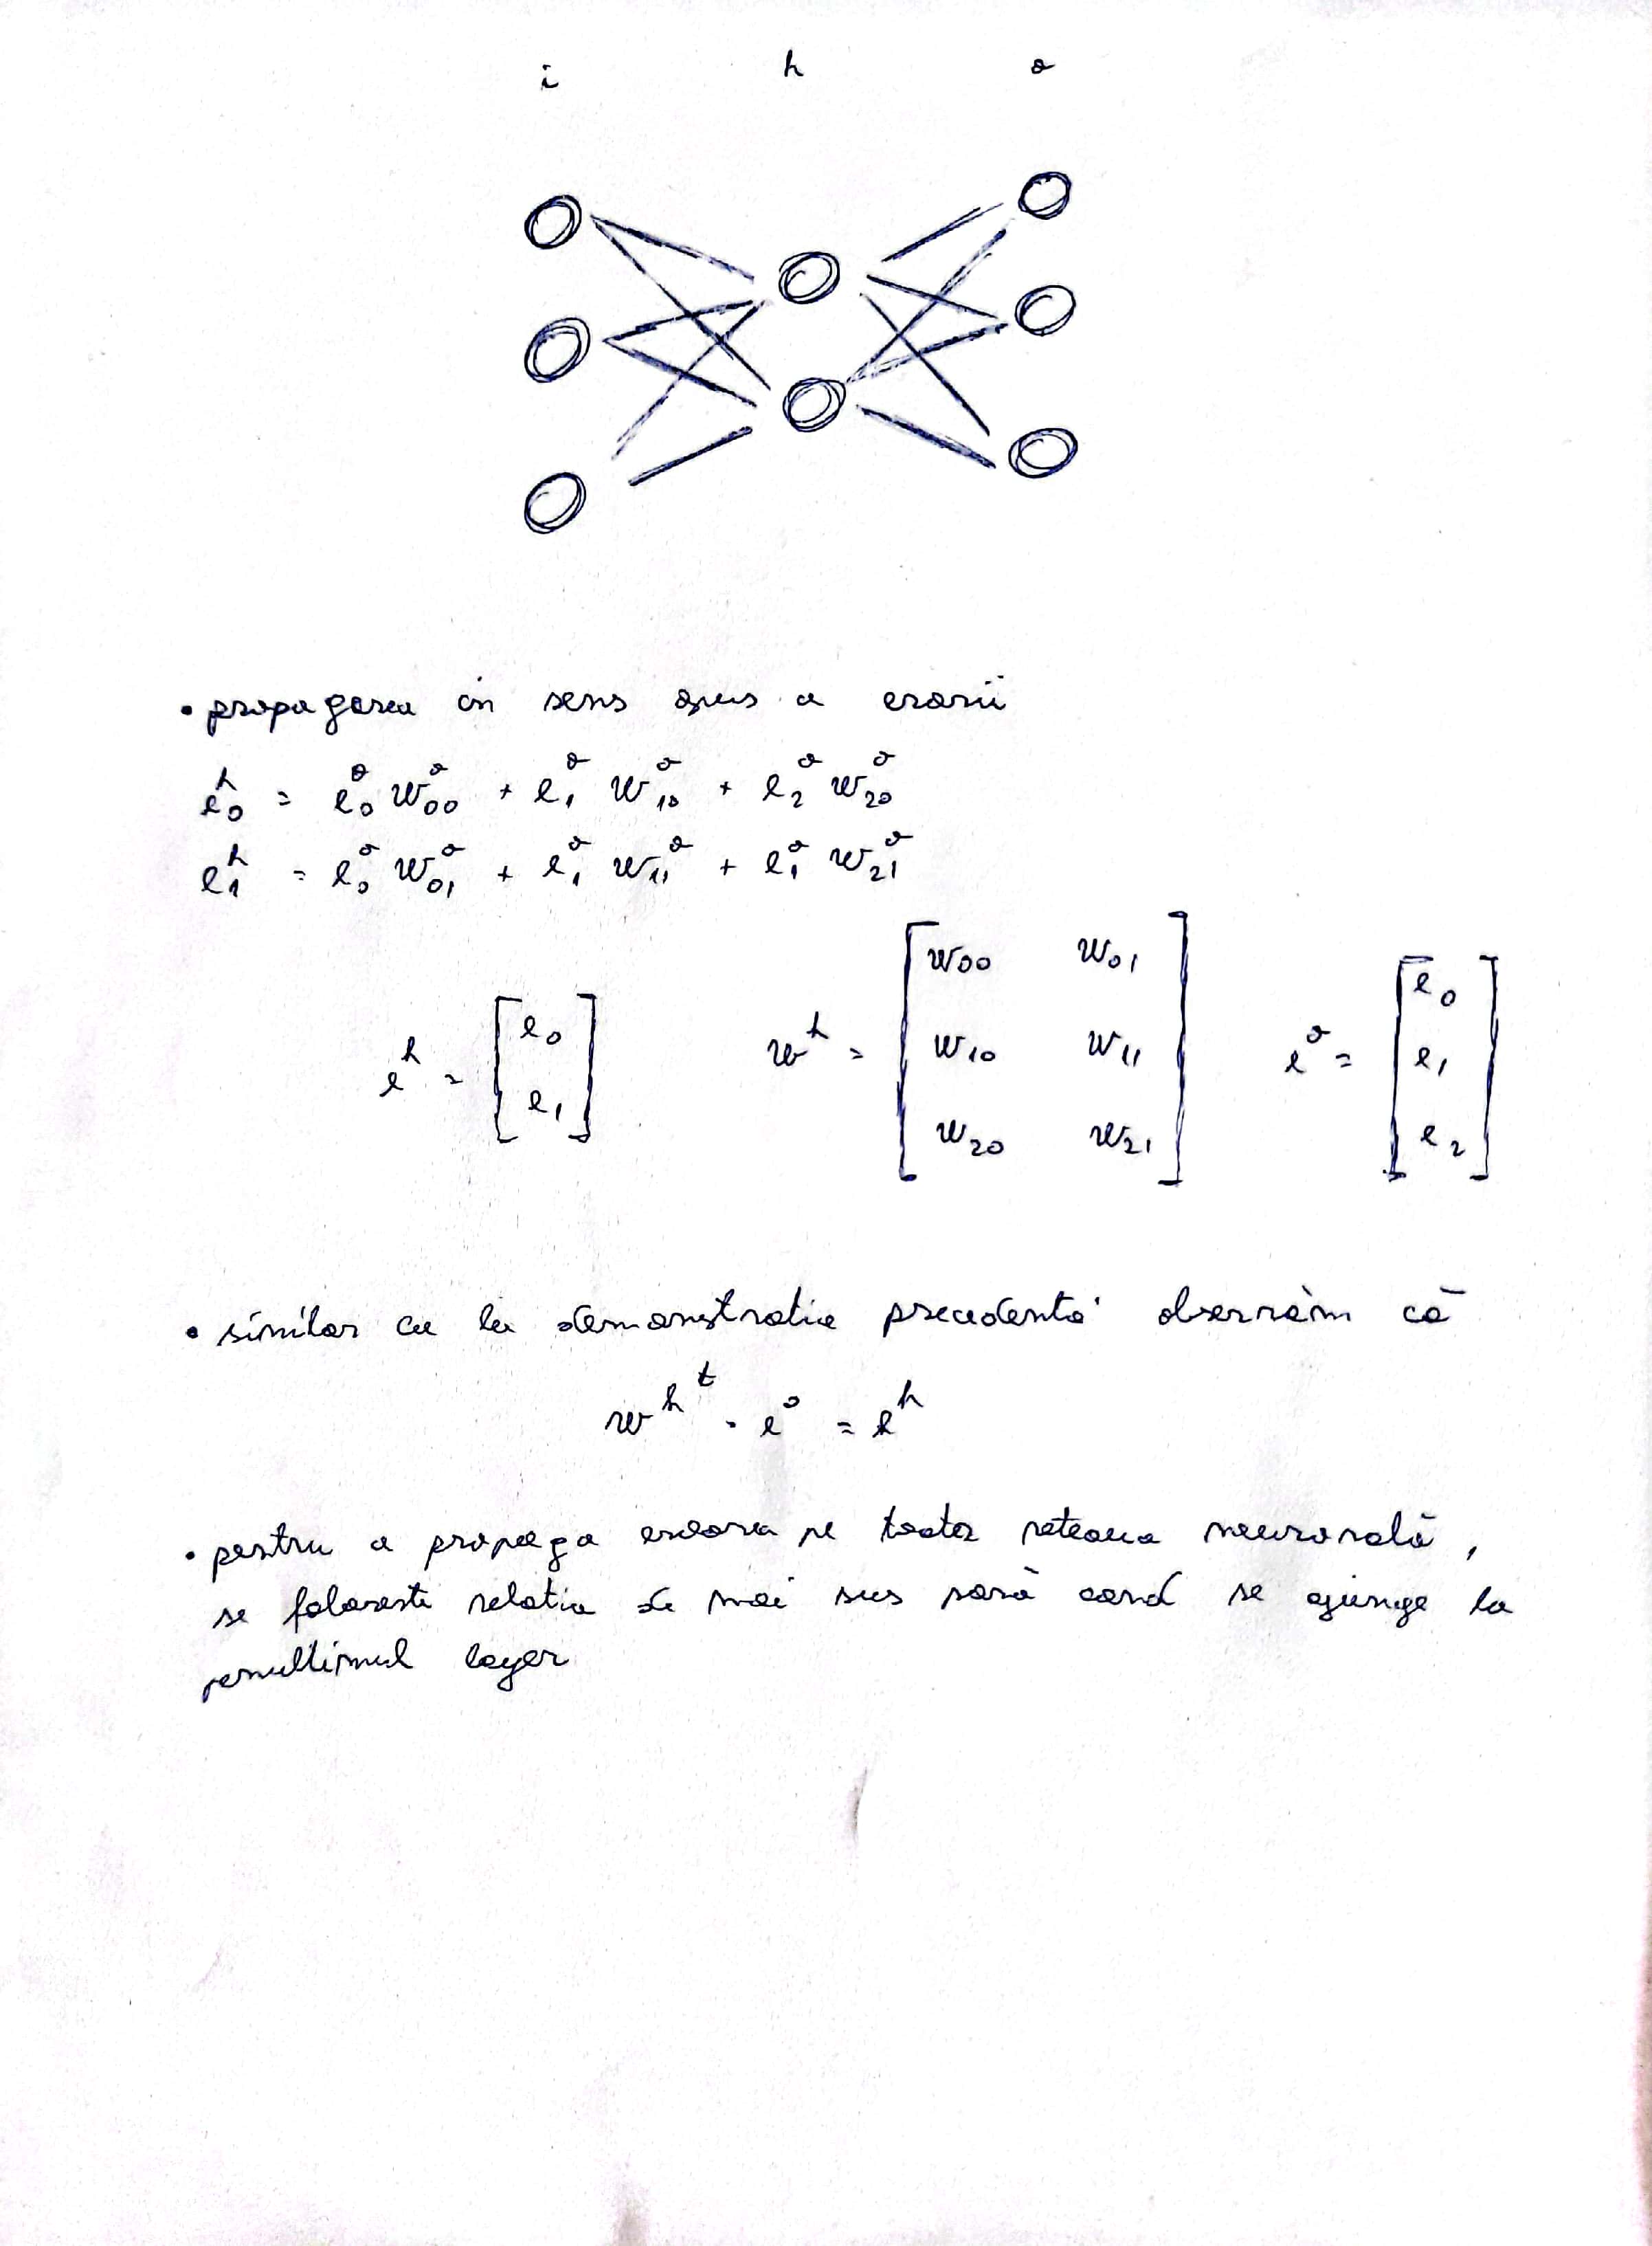 i h o
• propagarea in sens opus a erorii
e₀ʰ = e₀ᵒ w₀₀ᵒ + e₁ᵒ w₁₀ᵒ + e₂ᵒ w₂₀ᵒ
e₁ʰ = e₀ᵒ w₀₁ᵒ + e₁ᵒ w₁₁ᵒ + e₁ᵒ w₂₁ᵒ
eʰ = [e₀ e₁] wʰ = [w₀₀ w₀₁ w₁₀ w₁₁ w₂₀ w₂₁] eᵒ = [e₀ e₁ e₂]
• similar cu la demonstratia precedentă observăm că
wʰᵗ · eᵒ = eʰ
• pentru a propaga eroarea pe toata reteaua neuronală,
se foloseste relatia de mai sus pană cand se ajunge la
penultimul layer